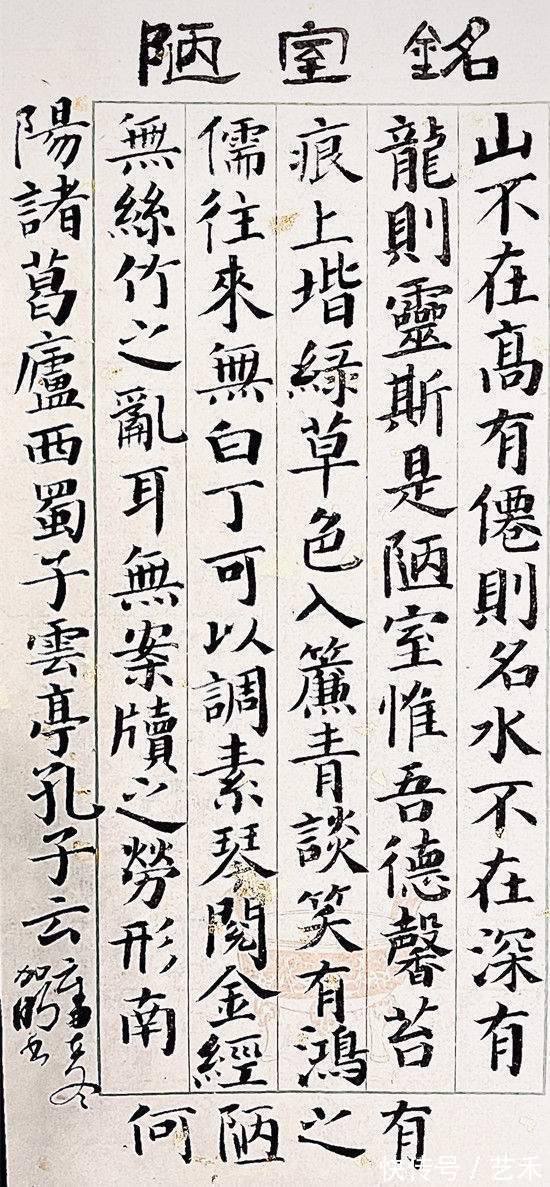 陋室銘
山不在高有僊則名水不在深有
龍則靈斯是陋室惟吾德馨苔
痕上堦綠草色入簾青談笑有鴻
儒往來無白丁可以調素琴閱金經
無絲竹之亂耳無案牘之勞形南
陽諸葛廬西蜀子雲亭孔子云
何陋之有
快传号/艺禾